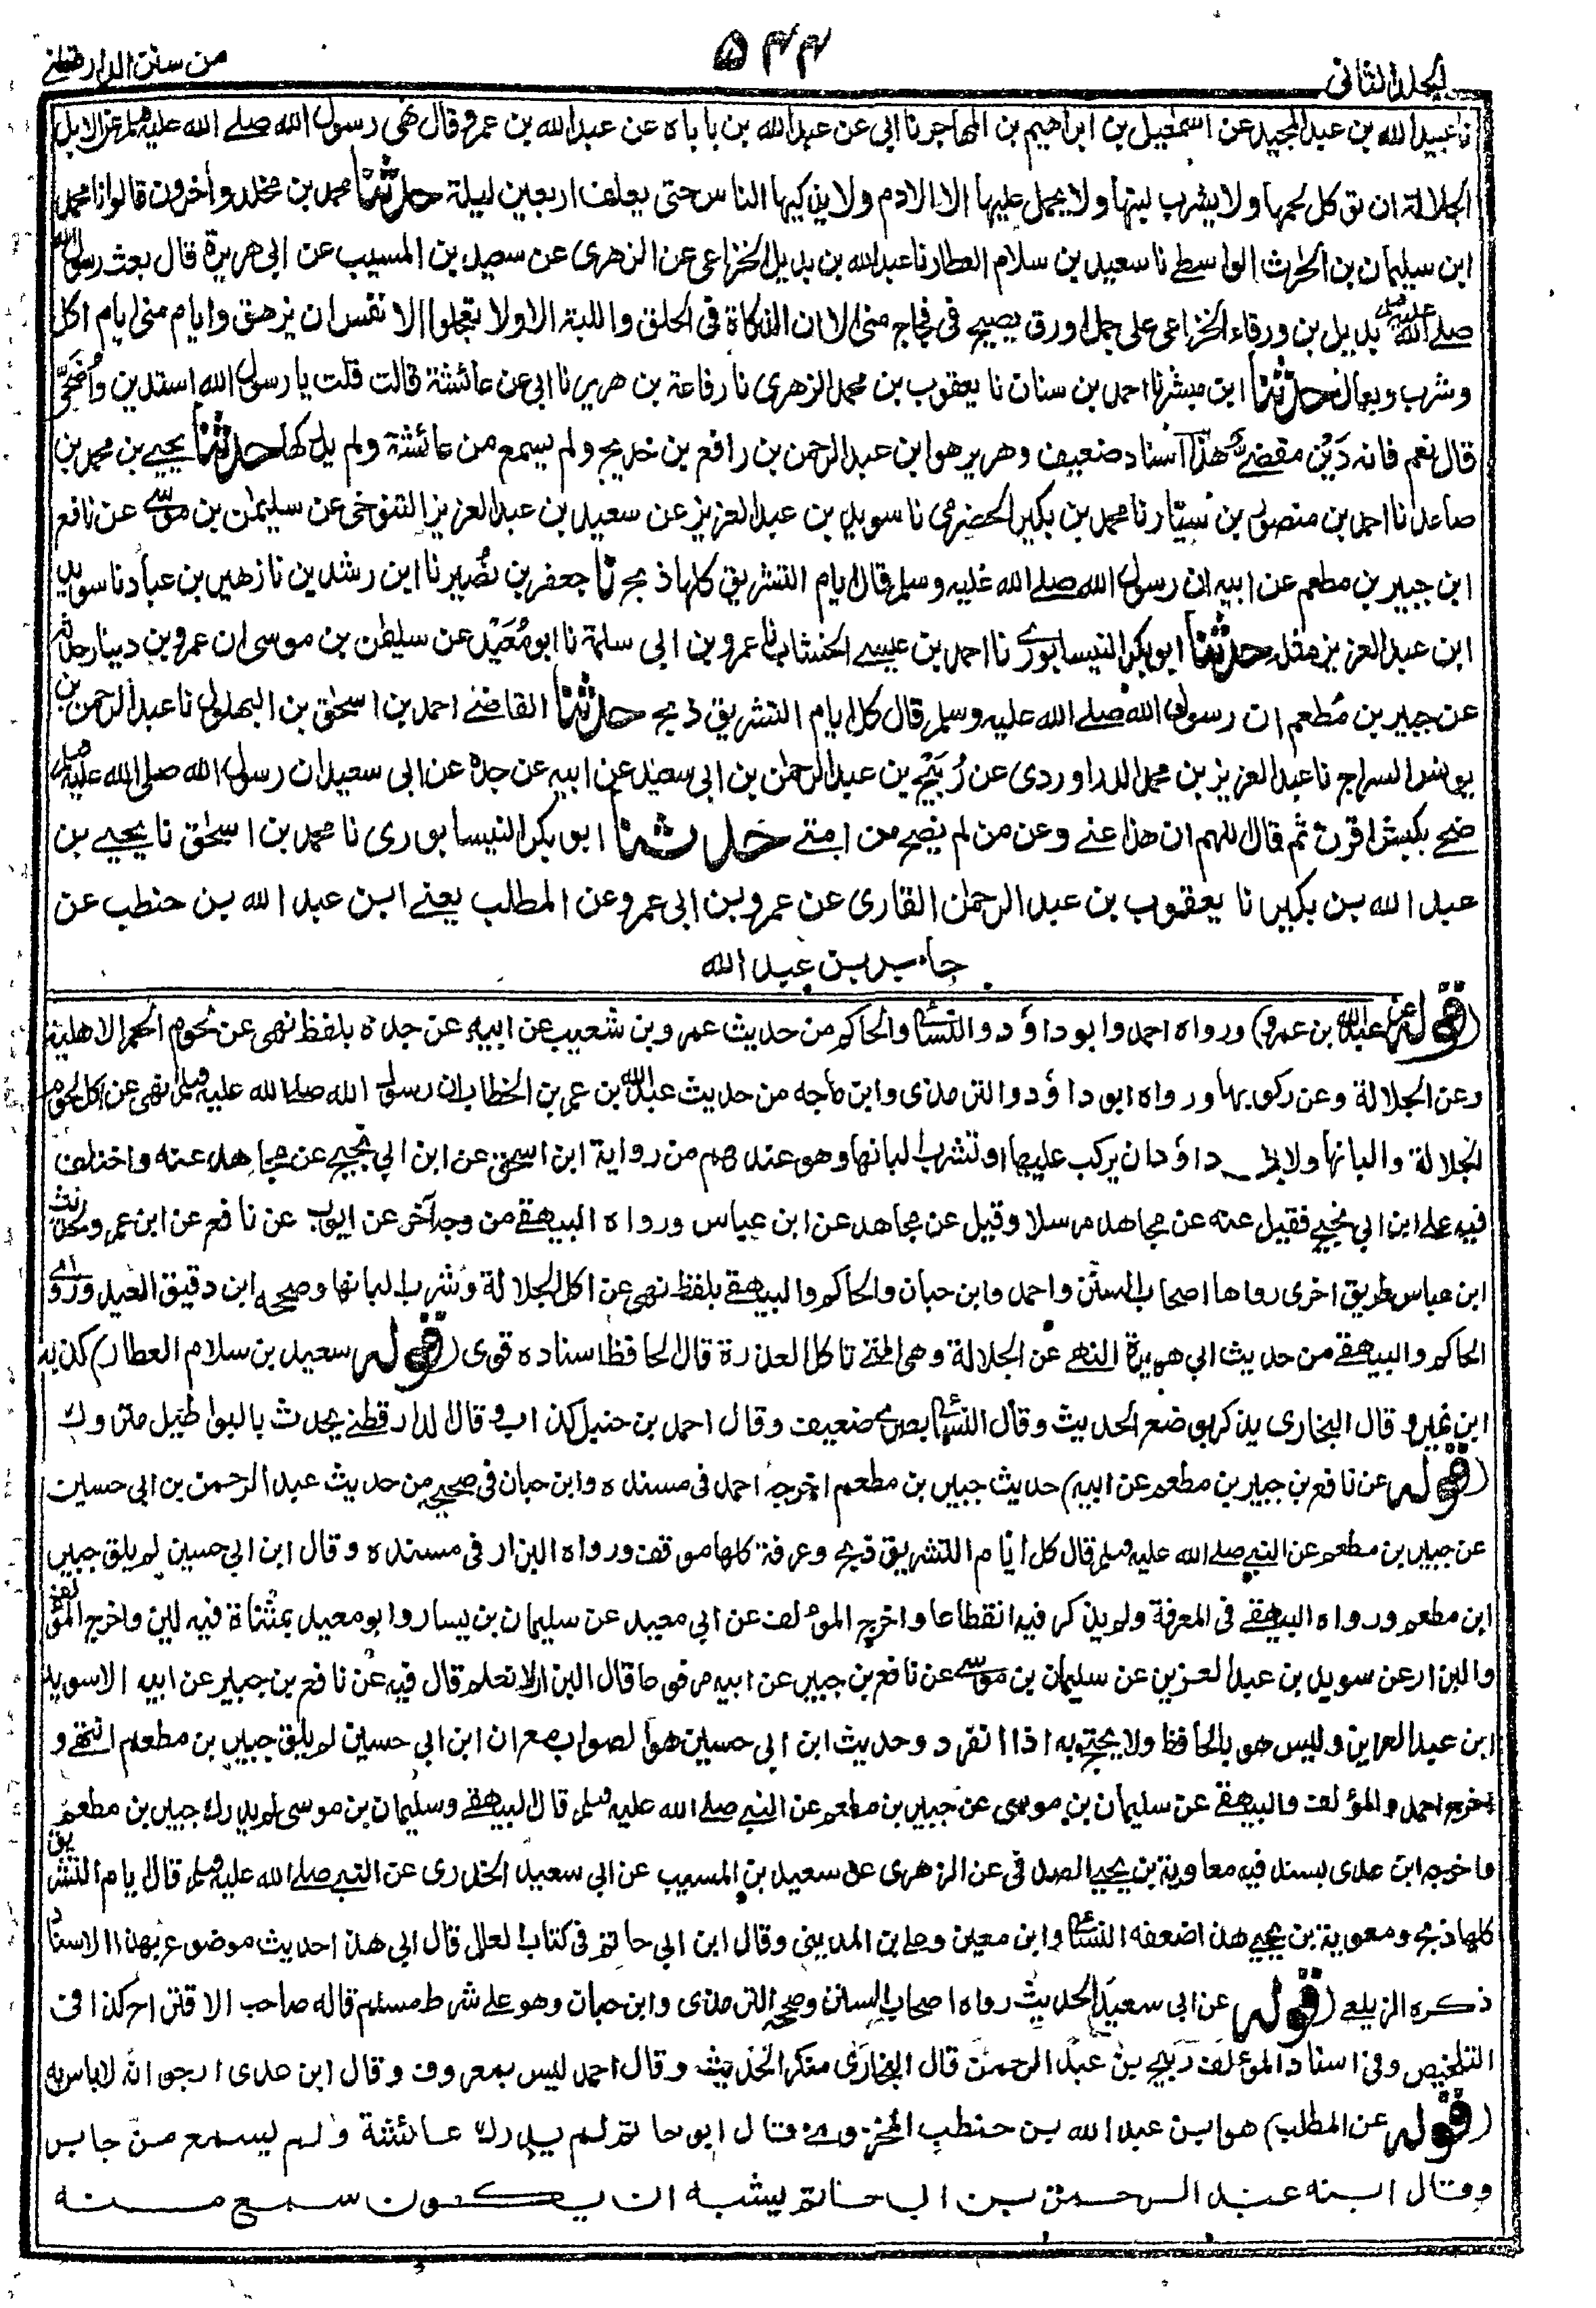 المجلد الثاني
۵۴۴
من سنن الدارقطني
نا عبيد الله بن عبد المجيد عن اسمعيل بن ابراهيم بن المهاجر نا ابي عن عبد الله بن باباه عن عبد الله بن عمرو قال نهى رسول الله صلے الله عليه وسلم عن الابل
الجلالة ان توكل لحمها ولا يشرب لبنها ولا يحمل عليها الا الادم ولا يذكيها الناس حتى يعلف اربعين ليلة حدثنا محمد بن مخلد واخرون قالوا نا محمد
ابن سليمان بن الحرث الواسطے نا سعيد بن سلام العطار نا عبد الله بن بديل الخزاعى عن الزهرى عن سعيد بن المسيب عن ابى هريرة قال بعث رسول الله
صلے الله عليه وسلم بديل بن ورقاء الخزاعى على جمل اورق يصيح فى فجاج منى الا ان الذكاة فى الحلق واللبة الا ولا تعجلوا الا نفس ان تزهق وايام منى ايام اكل
وشرب وبعال حدثنا ابن مبشر نا احمد بن سنان نا يعقوب بن محمد الزهرى نا رفاعة بن هرير نا ابى عن عائشة قالت قلت يا رسول الله استدين واُضَحِّى
قال نعم فانه دَيْن مقضىے هذا اسناد ضعيف وهرير هو ابن عبد الرحمن بن رافع بن خديج ولم يسمع من عائشة ولم يدركها حدثنا يحيے بن محمد بن
صاعد نا احمد بن منصور بن سيّار نا محمد بن بكير الحضرمى نا سويد بن عبد العزيز عن سعيد بن عبد العزيز التنوخى عن سليمٰن بن موسے عن نافع
ابن جبير بن مطعم عن ابيه ان رسول الله صلے الله عليه وسلم قال ايام التشريق كلها ذبح نا جعفر بن نُصَير نا ابن رشدين نا زهير بن عباد نا سويد
ابن عبد العزيز مثله حدثنا ابو بكر النيسابورے نا احمد بن عيسے الخشاب نا عمرو بن ابى سلمة نا ابو مُعَيْد عن سليمٰن بن موسى ان عمرو بن دينار حدثه
عن جبير بن مُطعم ان رسول الله صلے الله عليه وسلم قال كل ايام التشريق ذبح حدثنا القاضے احمد بن اسحٰق بن البهلول نا عبد الرحمن بن
يونس السراج نا عبد العزيز بن محمد الدراوردى عن رُبَيْح بن عبد الرحمٰن بن ابى سعيد عن ابيه عن جده عن ابى سعيد ان رسول الله صلى الله عليه وسلم
ضحے بكبش اقرن ثم قال اللهم ان هذا عنے وعن من لم يضح من امتے حدثنا ابو بكر النيسابورى نا محمد بن اسحٰق نا يحيے بن
عبد الله بن بكير نا يعقوب بن عبد الرحمٰن القارى عن عمرو بن ابى عمرو عن المطلب يعنے ابن عبد الله بن حنطب عن
جابر بن عبد الله
(قوله عن عبد الله بن عمرو) ورواه احمد وابو داؤد والنسائى والحاكم من حديث عمرو بن شعيب عن ابيه عن جده بلفظ نهى عن لحوم الحمر الاهلية
وعن الجلالة وعن ركوبها ورواه ابو داؤد والترمذى وابن ماجه من حديث عبد الله بن عمر بن الخطاب ان رسول الله صلے الله عليه وسلم نهى عن اكل لحوم
الجلالة والبانها ولابى داؤد ان يركب عليها او تشرب البانها وهو عندهم من رواية ابن اسحق عن ابن ابي نجيح عن مجاهد عنه واختلف
فيه على ابن ابي نجيح فقيل عنه عن مجاهد مرسلا وقيل عن مجاهد عن ابن عباس ورواه البيهقے من وجه آخر عن ايوب عن نافع عن ابن عمر ولحديث
ابن عباس طريق اخرى رواها اصحاب السنن واحمد وابن حبان والحاكم والبيهقے بلفظ نهى عن اكل الجلالة وشرب البانها وصححه ابن دقيق العيد وروى
الحاكم والبيهقے من حديث ابي هريرة النهے عن الجلالة وهى التے تاكل العذرة قال الحافظ اسناده قوى (قوله سعيد بن سلام العطار) كذبه
ابن نمير وقال البخارى يذكر بوضع الحديث وقال النسائى بصرى ضعيف وقال احمد بن حنبل كذاب وقال الدارقطنے يحدث بالبواطيل متروك
(قوله عن نافع بن جبير بن مطعم عن ابيه) حديث جبير بن مطعم اخرجه احمد فى مسنده وابن حبان فى صحيحه من حديث عبد الرحمن بن ابى حسين
عن جبير بن مطعم عن النبى صلے الله عليه وسلم قال كل ايام التشريق ذبح وعرفة كلها موقف ورواه البزار فى مسنده وقال ابن ابي حسين لم يلق جبير
ابن مطعم ورواه البيهقے فى المعرفة ولم يذكر فيه انقطاعا واخرج المؤلف عن ابي معيد عن سليمان بن يسار وابو معيد بمثناة فيه لين واخرج المؤلف
والبزار عن سويد بن عبد العزيز عن سليمان بن موسے عن نافع بن جبير عن ابيه مرفوعا قال البزار لا نعلم قال فيه عن نافع بن جبير عن ابيه الا سويد
ابن عبد العزيز وليس هو بالحافظ ولا يحتج به اذا انفرد وحديث ابن ابي حسين هو الصواب مع ان ابن ابي حسين لم يلق جبير بن مطعم انتهے و
اخرج احمد والمؤلف والبيهقے عن سليمان بن موسى عن جبير بن مطعم عن النبى صلے الله عليه وسلم قال البيهقے وسليمان بن موسى لم يدرك جبير بن مطعم
واخرجه ابن عدى بسند فيه معاوية بن يحيے الصدفى عن الزهرى عن سعيد بن المسيب عن ابي سعيد الخدرى عن النبى صلے الله عليه وسلم قال ايام التشريق
كلها ذبح ومعوية بن يحيے هذا ضعفه النسائى وابن معين وعلے بن المدينى وقال ابن ابى حاتم فى كتاب العلل قال ابى هذا حديث موضوع بهذا الاسناد
ذكره الزيلعے (قوله عن ابى سعيد) الحديث رواه اصحاب السنن وصححه الترمذى وابن حبان وهو على شرط مسلم قاله صاحب الاقتراح كذا فى
التلخيص وفى اسناد المؤلف ربيح بن عبد الرحمن قال البخارى منكر الحديث وقال احمد ليس بمعروف وقال ابن عدى ارجو انه لا باس به
(قوله عن المطلب) هو ابن عبد الله بن حنطب المخزومى قال ابو حاتم لم يدرك عائشة ولم يسمع من جابر
وقال ابنه عبد الرحمن بن ابى حاتم يشبه ان يكون سمع منه